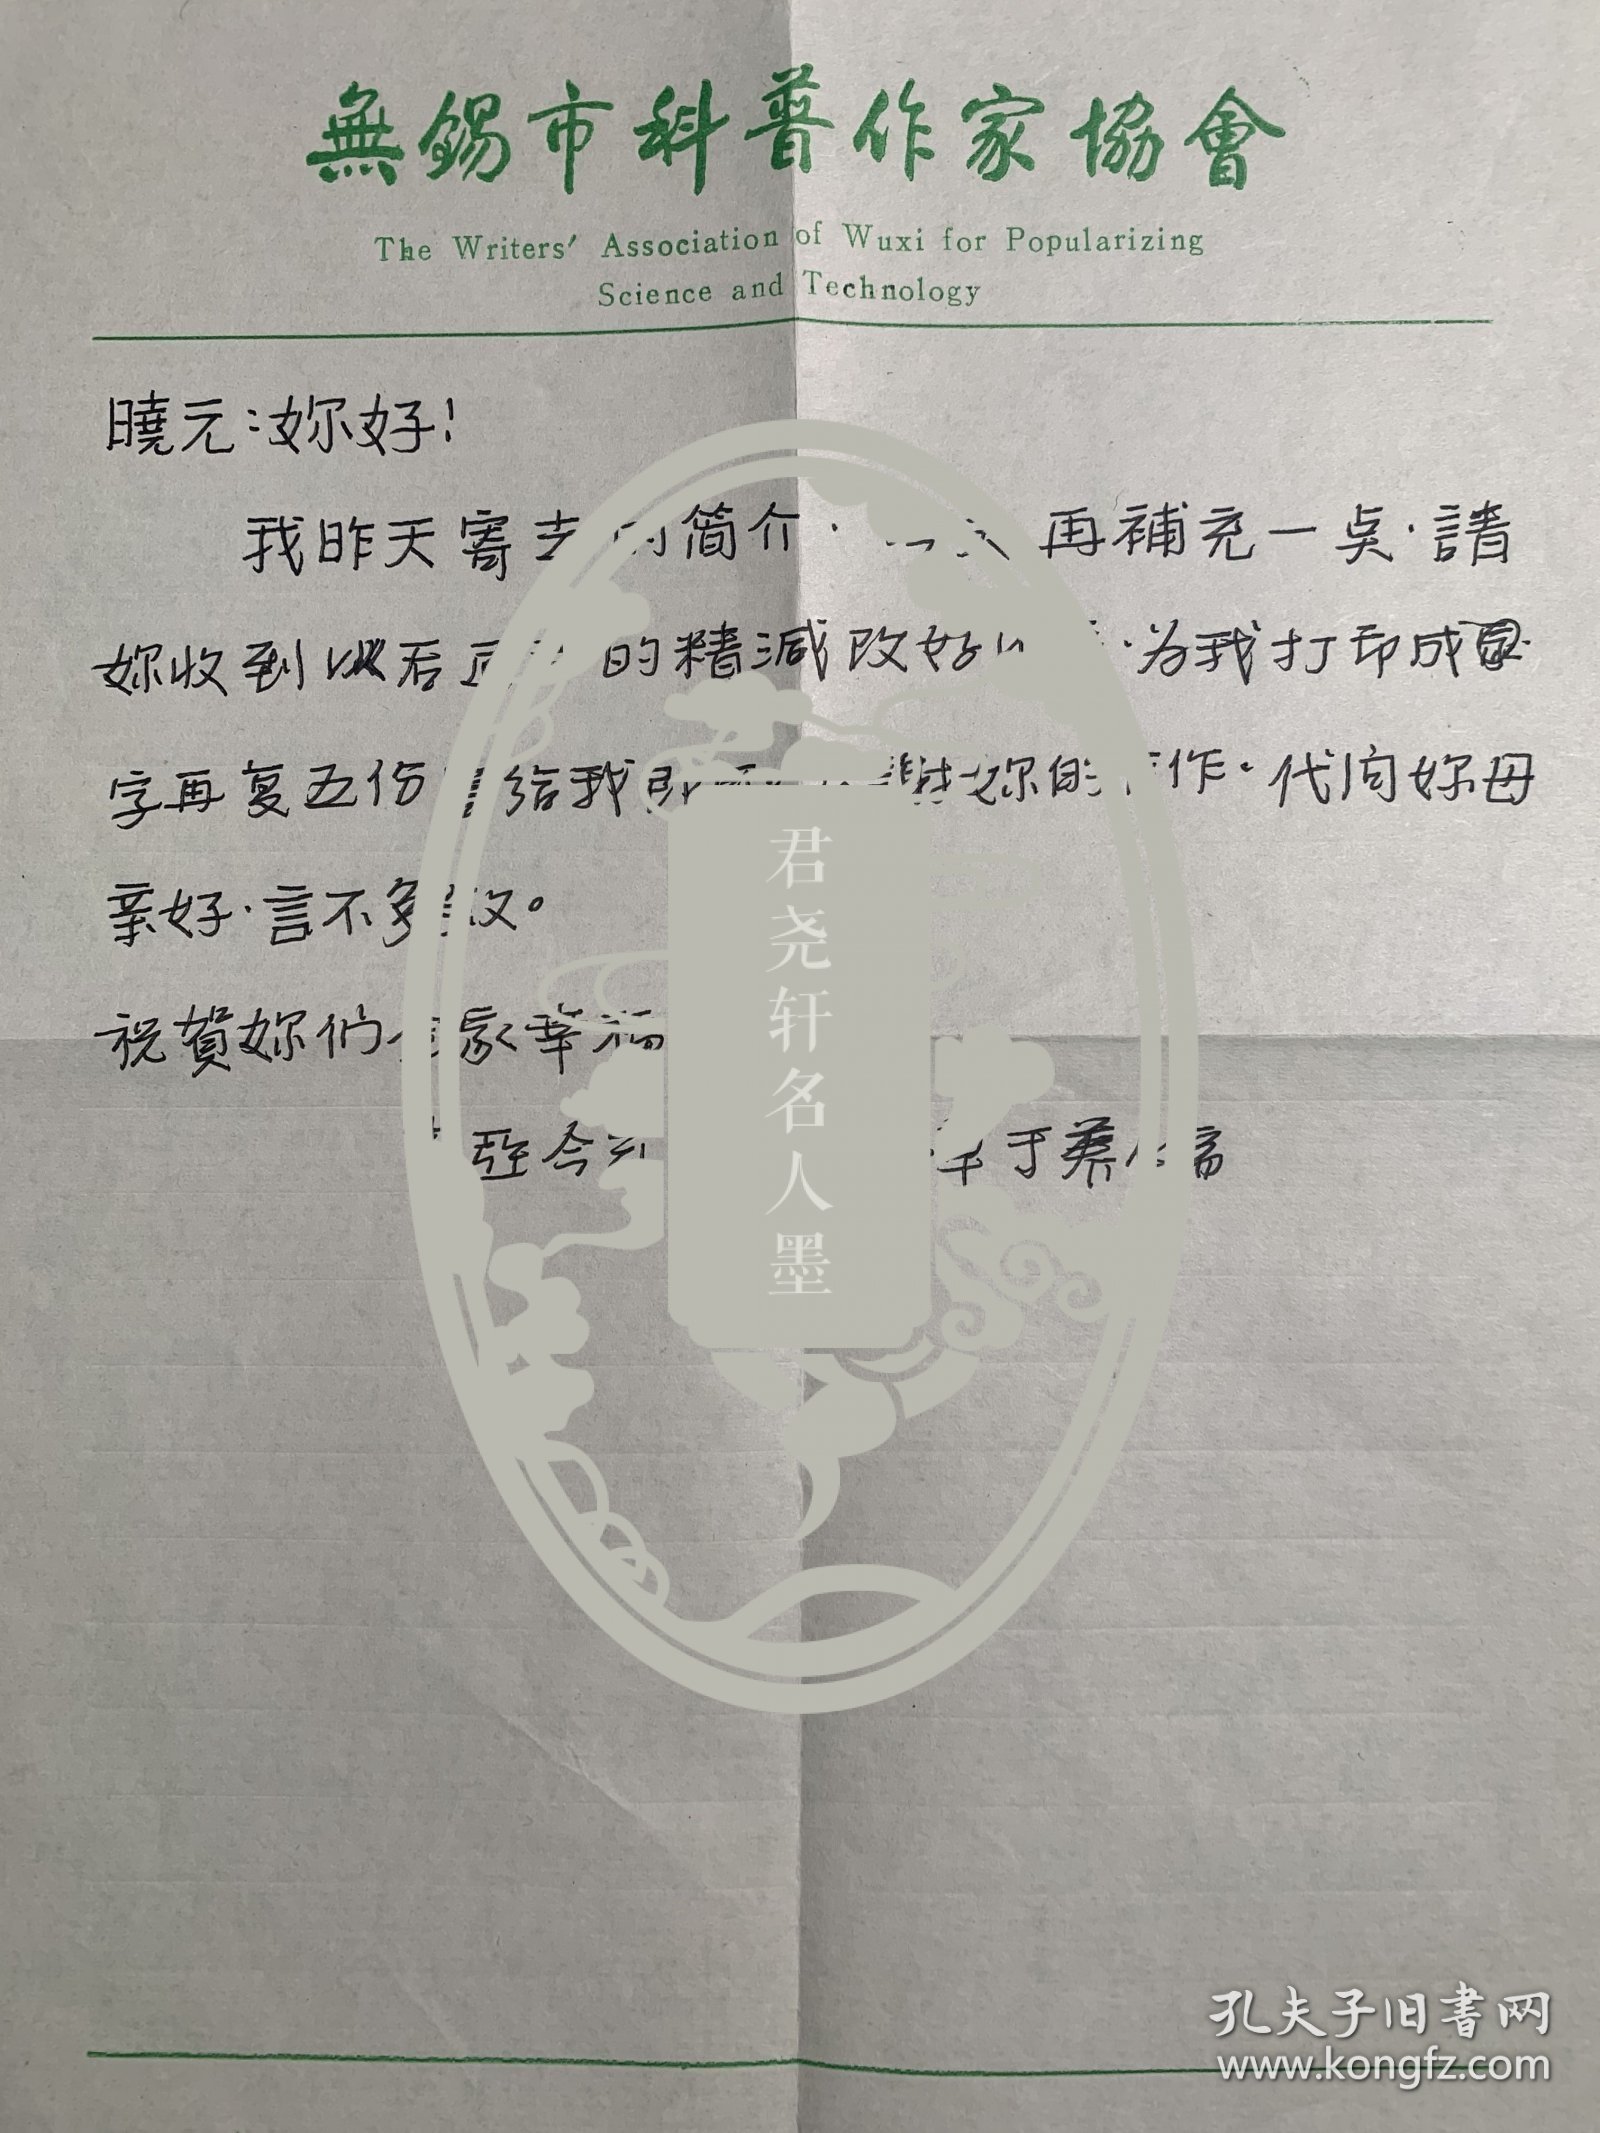 無錫市科普作家協會
The Writers' Association of Wuxi for Popularizing
Science and Technology
曉元：妳好！
我昨天寄去的简介· 再補充一点·請
妳收到以后 的精減改好 ·为我打印成
字再复五份 给我 謝妳的 作。代问妳母
亲好·言不多叙。
祝賀妳們全家幸福
亞今 于蔡
君尧轩名人墨
孔夫子旧書网
www.kongfz.com